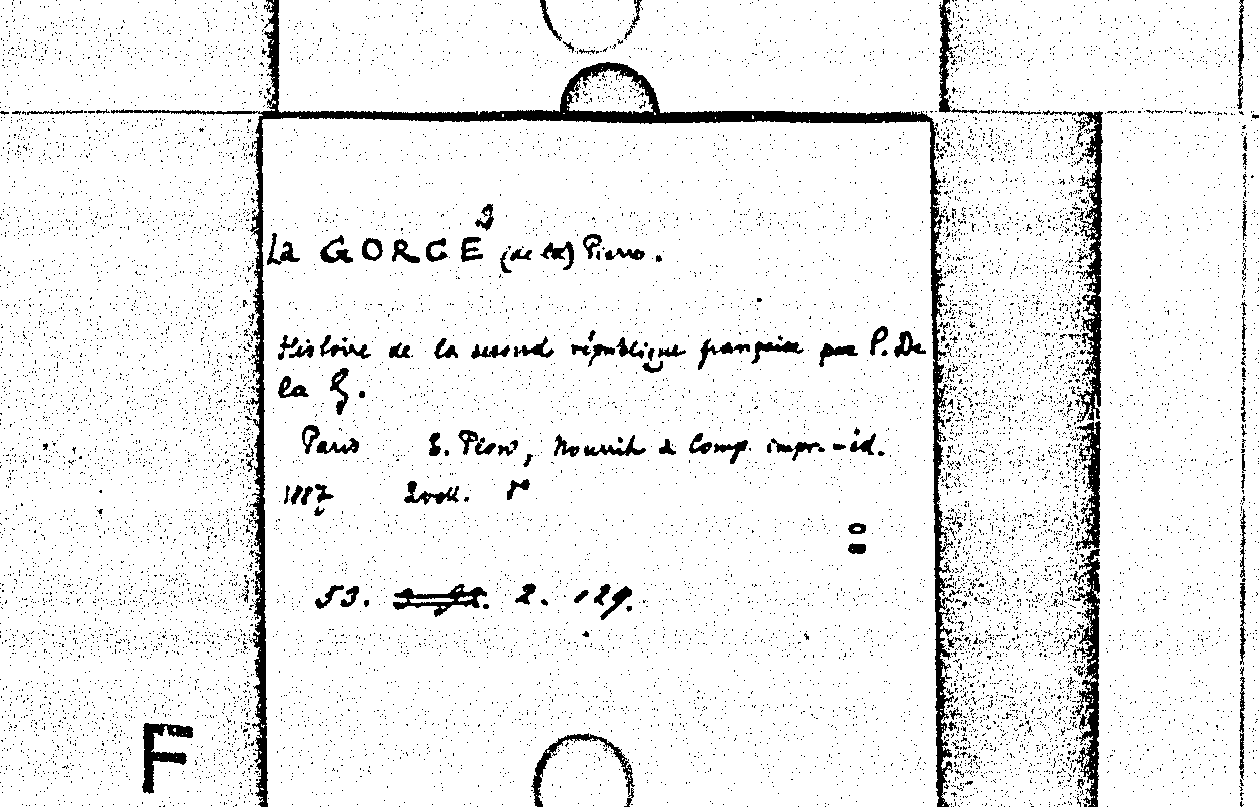 2
La GORCE (de la) Pierre.
Histoire de la second république française par P. De
la G.
Paris E. Plon, Nourrit & Comp. impr.-éd.
1887 2 voll. 8°
53. 2. 129.
F